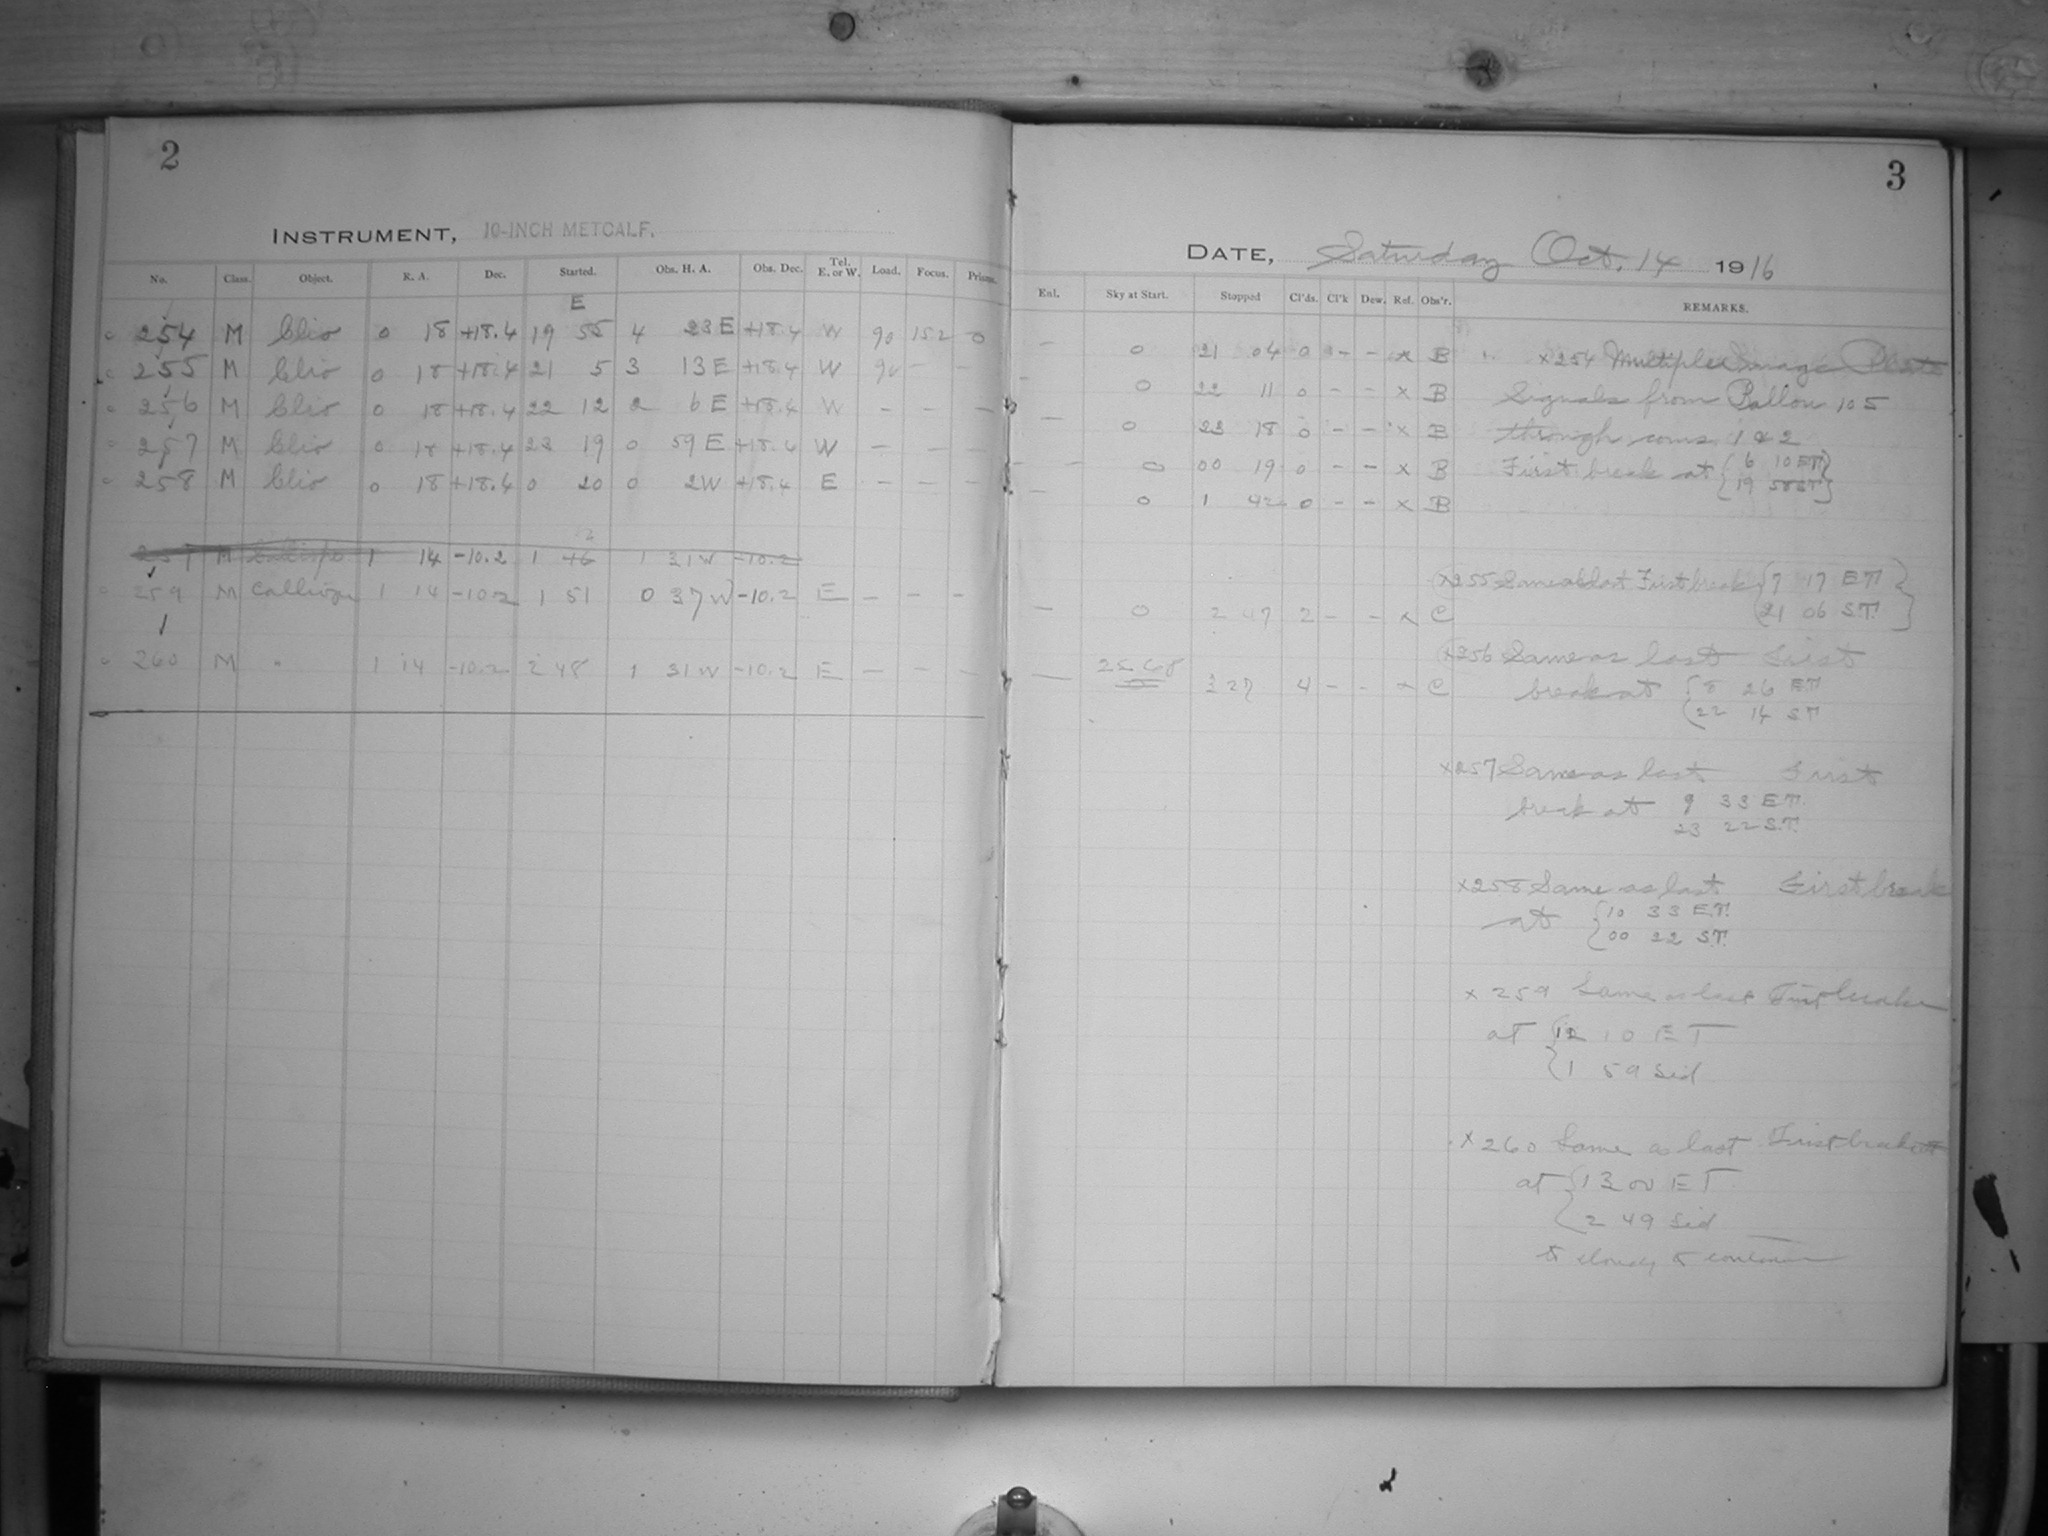 2
INSTRUMENT, 10-INCH METCALF.
No. Class. Object. R. A. Dec. Started. Obs. H. A. Obs. Dec. Tel. E. or W. Load. Focus. Prism.
E
254 M Clio 0 18 +18.4 19 55 4 23 E +18.4 W 90 152 0
255 M Clio 0 18 +18.4 21 5 3 13 E +18.4 W 90 - -
256 M Clio 0 18 +18.4 22 12 2 6 E +18.4 W - - -
257 M Clio 0 18 +18.4 23 19 0 59 E +18.4 W - - -
258 M Clio 0 18 +18.4 0 20 0 2 W +18.4 E - - -
M 1 14 -10.2 1 46 1 31 W -10.2
259 M Calliope 1 14 -10.2 1 51 0 37 W -10.2 E - - -
260 M " 1 14 -10.2 2 48 1 31 W -10.2 E - - -
3
DATE, Saturday Oct. 14 1916
Enl. Sky at Start. Stopped Cl'ds. Cl'k Dew. Ref. Obs'r. REMARKS.
- 0 21 04 0 - - x B x254 Multiple Image
- 0 22 11 0 - - x B Signals from 105
- 0 23 18 0 - - x B through coms. 1 & 2
- 0 00 19 0 - - x B First break at { 6 10 ET }
{ 19 58 ST }
- 0 1 42 0 - - x B
x255 Same as last First break { 7 17 ET
{ 21 06 S.T. }
- 0 2 47 2 - - x C
x256 Same as last First
break at { 8 26 ET
{ 22 14 ST
- 3 27 4 - - x C
x257 Same as last First
break at 9 33 ET.
23 22 S.T.
x258 Same as last First break
at { 10 33 E.T.
{ 00 22 S.T.
x 259 Same as last First break
at { 12 10 ET
{ 1 59 Sid
x 260 Same as last First break
at { 13 00 ET
{ 2 49 Sid
cloudy to continue